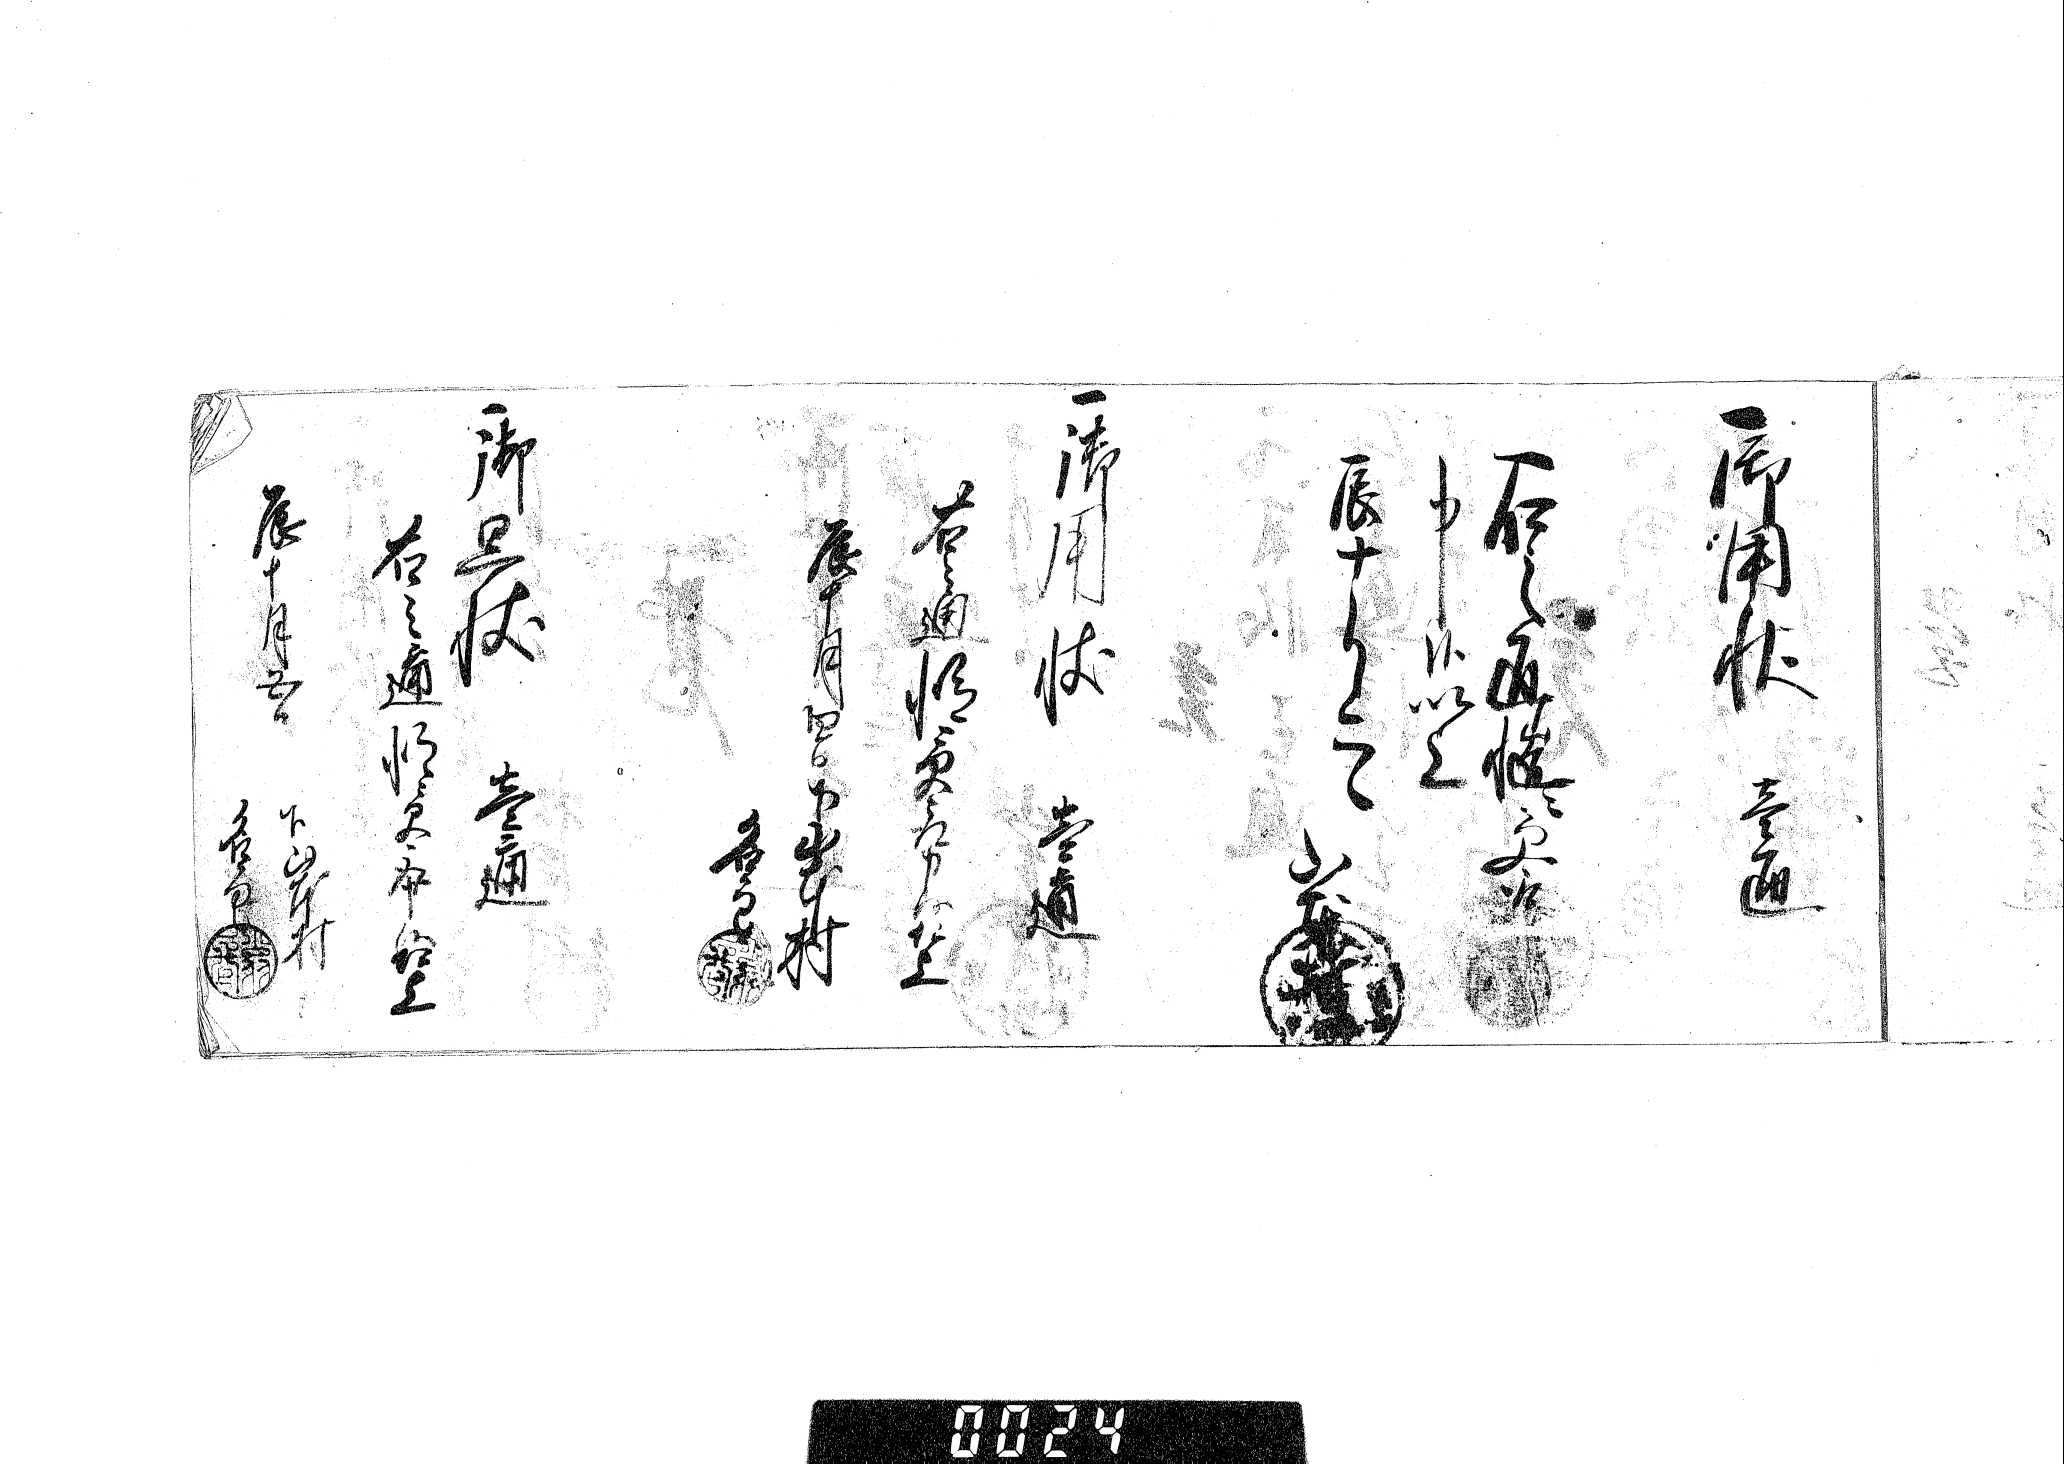 一御用状　壱通
右之通慥ニ受取
申候以上
辰十月二日
一御用状　壱通
右之通慥ニ受取申候以上
辰十月四日
下山村
名主
一御用状　壱通
右之通慥ニ受取申候以上
辰十月五日
下山村
名主
0024